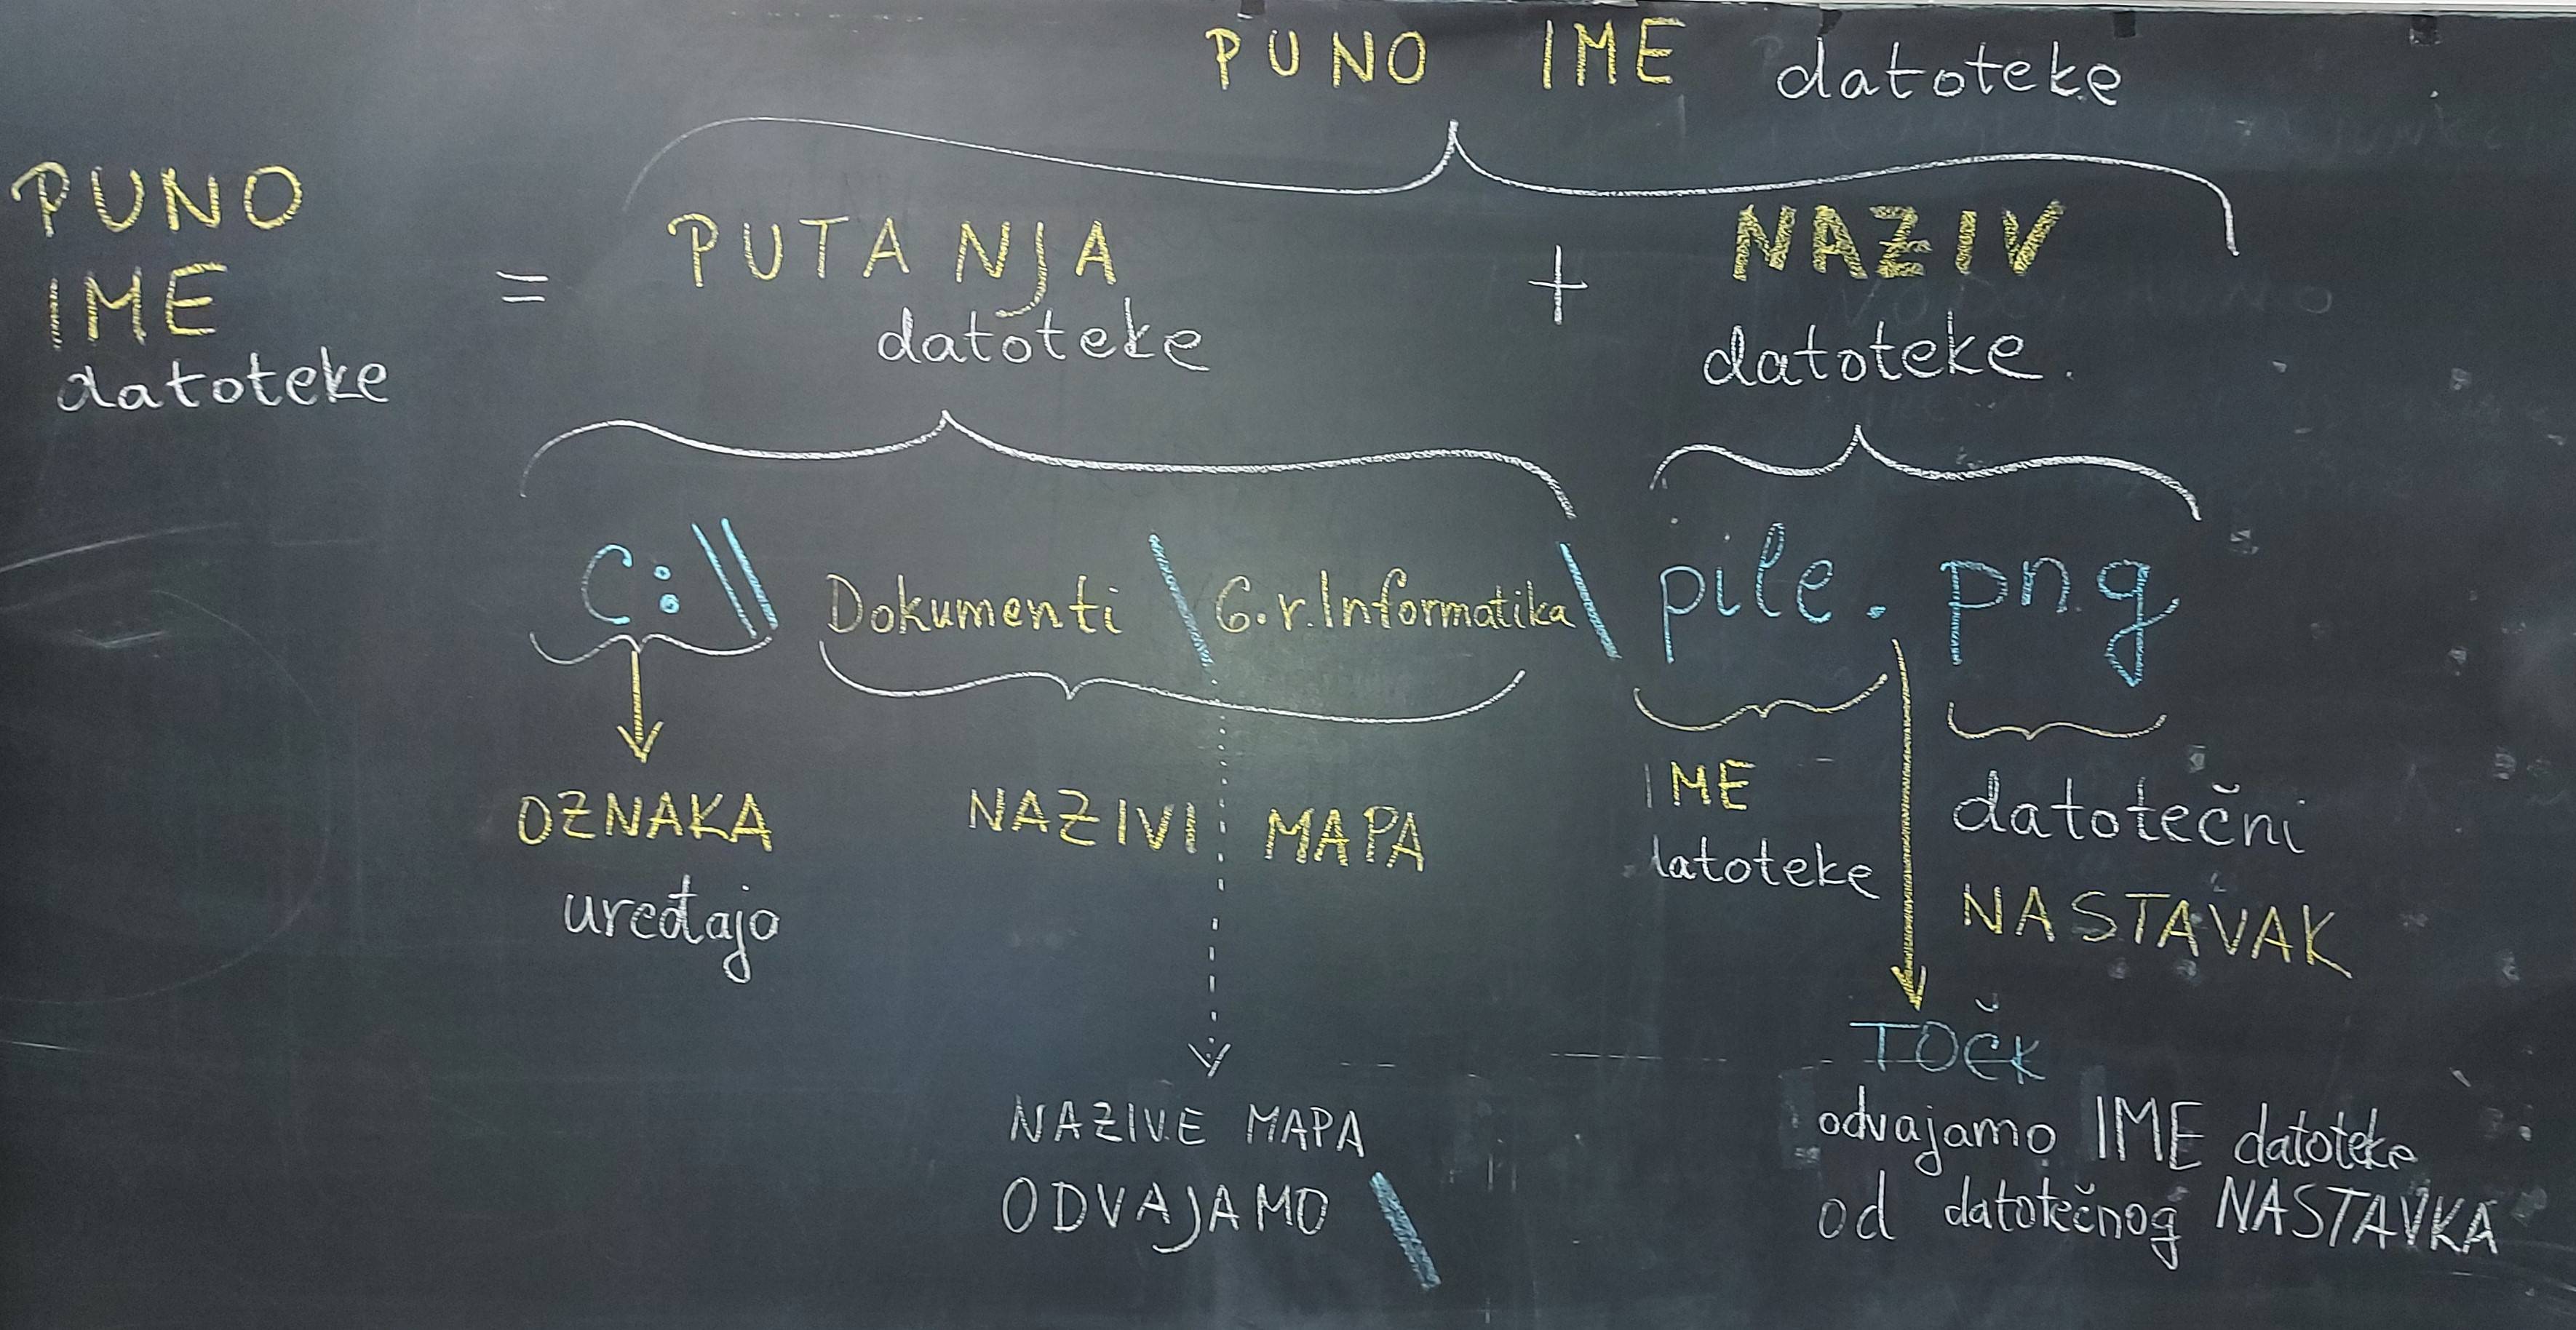 PUNO IME datoteke
PUNO
IME
datoteke
=
PUTANJA
datoteke
+
NAZIV
datoteke
C:\\ Dokumenti \ 6.r.Informatika \ pile.png
OZNAKA
uređaja
NAZIVI MAPA
IME
datoteke
datotečni
NASTAVAK
NAZIVE MAPA
ODVAJAMO \
TOČK
odvajamo IME datoteke
od datotečnog NASTAVKA